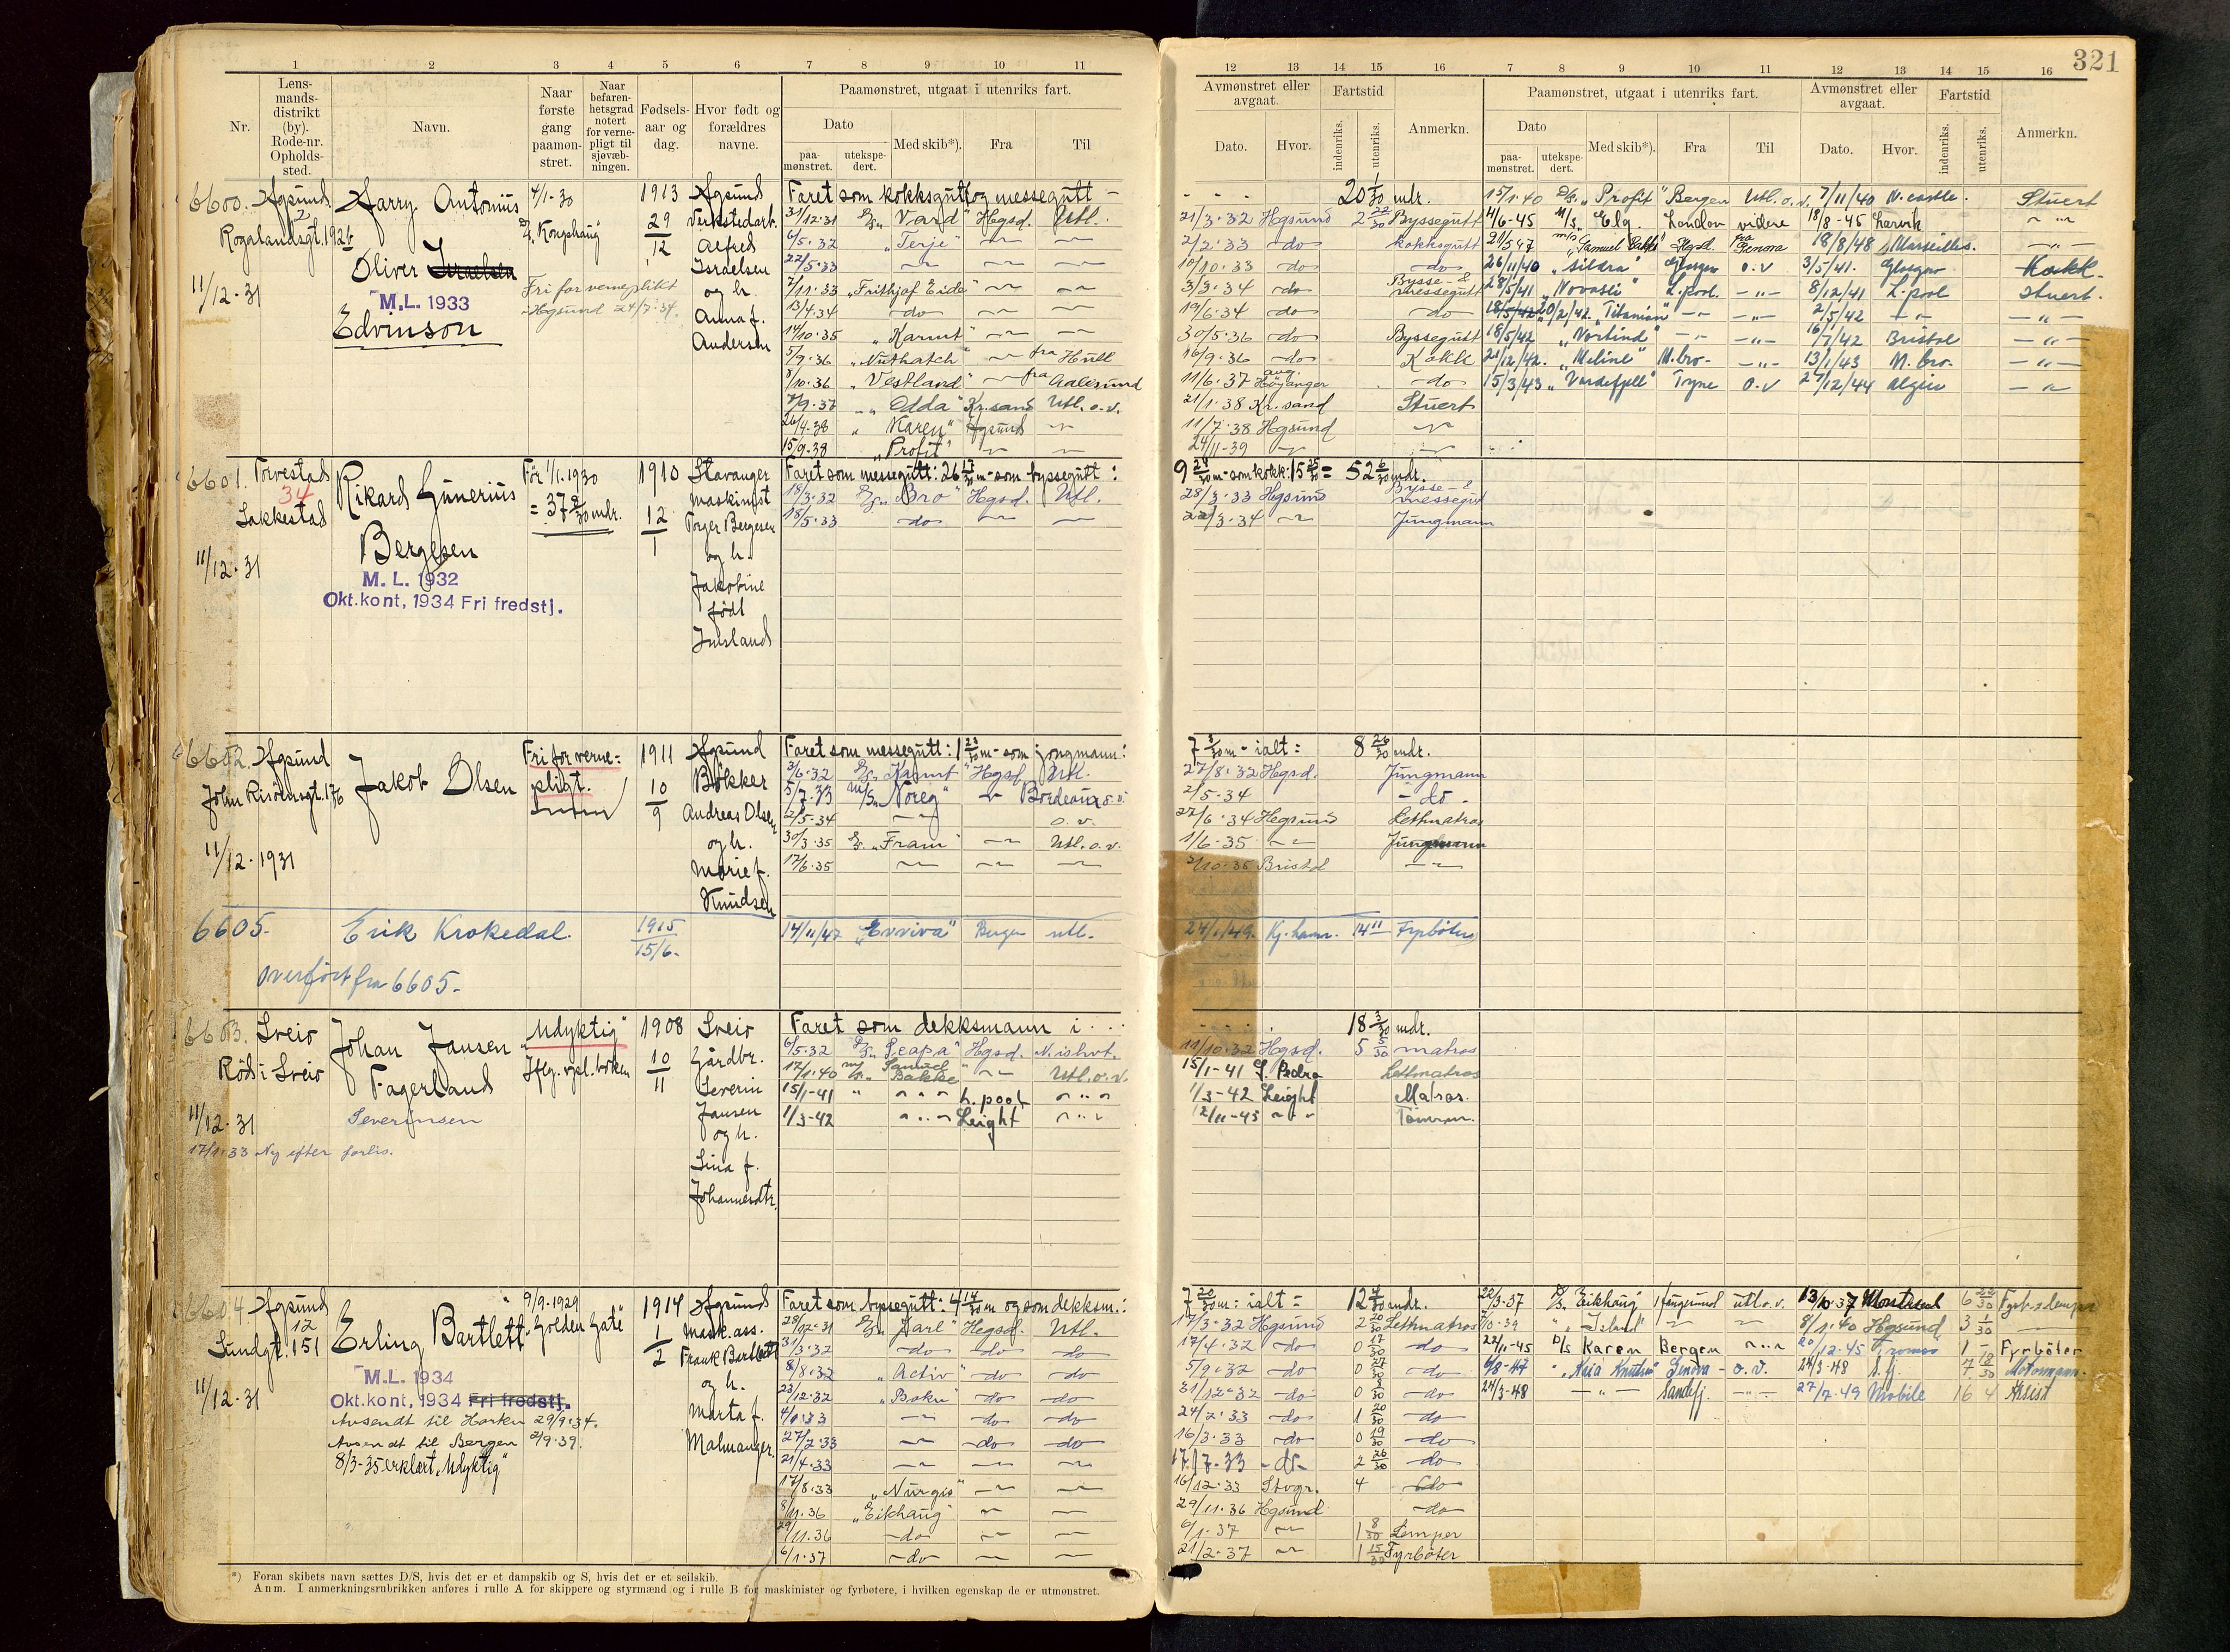 321
1 2 3 4 5 6 7 8 9 10 11
12 13 14 15 16 7 8 9 10 11 12 13 14 15 16
Nr.
Lens-
mands-
distrikt
(by).
Rode-nr.
Opholds-
sted.
Navn.
Naar
første
gang
paamøn-
stret.
Naar
befaren-
hetsgrad
notert
for verne-
pligt til
sjøvæb-
ningen.
Fødsels-
aar og
dag.
Hvor født og
forældres
navne.
Paamønstret, utgaat i utenriks fart.
Dato
paa-
mønstret.
utekspe-
dert.
Med skib*).
Fra
Til
Avmønstret eller
avgaat.
Dato.
Hvor.
Fartstid
indenriks.
utenriks.
Anmerkn.
Paamønstret, utgaat i utenriks fart.
Dato
paa-
mønstret.
utekspe-
dert.
Med skib*).
Fra
Til
Avmønstret eller
avgaat.
Dato.
Hvor.
Fartstid
indenriks.
utenriks.
Anmerkn.
6600. Hgsund 2
Rogalandsgt. 192
11/12-31
Harry Antonius
Oliver Israelsen
M.L. 1933
Edvinson
4/1-30
Kongshaug
Fri for verneplikt
Hgsund 24/7-34.
1913
29/12
Hgsund
Verkstedarb.
Alfred
Israelsen
og h.
Anna f.
Andersen
Faret som kokksgutt og messegutt — 20 1/30 mdr.
31/12-31 "Vard" Hgsd. Utl. 21/3-32 Hgsund 2 22/30 Byssegutt
6/5-32 "Terje" 2/2-33 do kokksgutt
22/5-33 10/10-33 do do
7/11-33 "Frithjof Eide" 3/3-34 do Bysse- & messegutt
13/4-34 do 19/6-34 do do
14/10-35 "Karmt" 30/5-36 do Byssegutt
5/9-36 "Nuthatch" fra Hull 16/9-36 do Kokk
8/10-36 "Vestland" fra Aalesund 11/6-37 Höyanger do
7/9-37 "Odda" Kr.sand Utl. o.v. 21/1-38 Kr.sand Stuert
26/4-38 "Karen" Hgsund 11/7-38 Hgsund
15/9-38 "Profit" 24/11-39
15/1-40 "Profit" Bergen Utl. o.v. 7/11/40 N.castle. Stuert
4/6-45 M/S Elg. London videre 18/8-45 Larvik
21/5 47 Samuel Bakke Hgsd. fra Genova 18/8/48 Marseilles.
26/11/40 "Sildra" Glasgow o.v 3/5/41. Glasgow Kokk.
28/5/41 "Novasli" L.pool. 8/12/41 L.pool Stuert.
18/5/42 20/2/42. "Titanian" 2/5/42
18/5/42 "Nortind" 16/7/42 Bristol
21/12/42. "Meline" M.bro- 13/1/43 M.bro-
15/3/43 "Vardefjell" Tyne o.v 27/12/44 Algier
6601. Torvestad
34
Lakkestad
11/12-31
Rikard Gunerius
Bergesen
M. L. 1932
Okt.kont, 1934 Fri fredstj.
För 1/1-1930
= 37 8/30 mdr.
1910
12/1
Stavanger
maskinist
Torger Bergesen
og h.
Jakobine
födt
Faret som messegutt: 26 17/30 m- som byssegutt: 9 24/30 m- som kokk: 15 25/30 = 52 6/30 mdr.
18/3-32 "Bro" Hgsd. Utl. 28/3-33 Hgsund Bysse- & messegutt
18/5-33 do 22/3-34 Jungmann
6602. Hgsund
John Risöensgt. 176
11/12-1931
Jakob Olsen
Fri for verne=
pligt.
1911
10/9
Hgsund
Bökker
Andreas Olsen
og h.
Marie f.
Knudsen
Faret som messegutt: 1 23/30 m- som jongmann: 7 3/30 m- ialt = 8 26/30 mdr.
3/6-32 "Karmt" Hgsd. Utl. 27/8-32 Hgsd. Jungmann
5/7-33 M/S "Noreg" Bordeaux o.v. 2/5-34 do
2/5-34 o.v. 27/6-34 Hegsund Lettmatros
30/3-35 "Fram" Utl. o.v. 1/6-35 Jungmann
17/6-35 2/10-35 Bristol
6605. Erik Krokedal. 1915 15/6- 14/11/47 "Evviva" Bergen utl. 24/1/49. Kj.havn. 14 11 Fyrböter
overfört fra 6605-
6603. Sveio
Röds i Sveio
11/12-31
17/1-33 Ny efter forlis.
Johan Jansen
Fagerland
Severinsen
"Udyktig"
Hfg. rpl. boken
1908
10/11
Sveio
Gårdbr.
Severin
Jansen
og h.
Lina f.
Johannesdtr.
Faret som dekksmann i . . . 18 3/30 mdr.
6/5-32 "Leapa" Hgsd. N. ishvt. 11/10-32 Hgsd. 5 5/30 matros
17/1-40 M/S Samuel Bakke Utl. o.v. 15/1-41 S. Pedro Lettmatros
15/1-41 L.pool 1/3-42 Leight Matros.
1/3-42 Leight 12/11-43 Tömrm.
6604. Hgsund
12
Sundgt. 151
11/12-31
Erling Bartlett
M.L. 1934
Okt.kont, 1934 Fri fredstj.
Avsendt til Horten 29/9-34.
Avsendt til Bergen 2/9-39.
8/3-35 erklært "Udyktig"
9/9-1929
"Golden Gate"
1914
1/2
Hgsund
Mask.ass.
Frank Bartlett
og h.
Marta f.
Malmanger.
Faret som byssegutt: 4 14/30 m og som dekksm.: 7 20/30 m: ialt = 12 4/30 mdr.
28/12-31 "Jarl" Hegsd. Utl. 17/3-32 Hgsund 2 20/30 Lettmatros
31/3-32 do do do 17/4-32 do 0 17/30 do
8/8-32 "Activ" do do 5/9-32 do 0 27/30 do
23/12-32 "Boku" do do 31/12-32 do 0 8/30 do
4/1-33 do do 24/2-33 do 1 20/30 do
27/2-33 do do 16/3-33 do 0 19/30 do
21/4-33 17/7-33 do 2 26/30 do
17/8-33 "Nurgis" 16/12-33 Stvgr. 4 do
8/11-36 "Eikhaug" 29/11-36 Hgsund do
29/11-36 do 6/1-37 1 8/30 Lemper
6/1-37 do 21/2-37 1 15/30 Fyrböter
22/3-37 D/S "Eikhaug" Haugesund utl. o.v. 13/10-37 Montreal 6 22/30 Fyrb. & lemper
7/10-39 "Island" 8/1-40 Hgsund 3 1/30
22/11-45 D/S Karen Bergen 20/12-45 Tromsö 1 - Fyrböter
6/8-47 "Marie Knutsen" Genova o.v. 24/3-48 S.fj. 7 18/30 Motormann.
24/3-48 Sandefj. 27/7-49 Mobile 16 4 Assist
*) Foran skibets navn sættes D/S, hvis det er et dampskib og S, hvis det er et seilskib.
Anm. I anmerkningsrubrikken anføres i rulle A for skippere og styrmænd og i rulle B for maskinister og fyrbøtere, i hvilken egenskap de er utmønstret.